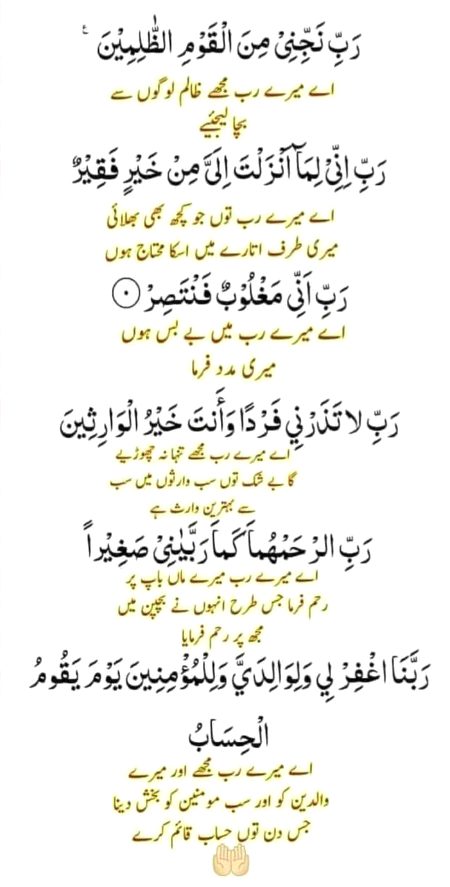 رَبِّ نَجِّنِيْ مِنَ الْقَوْمِ الظّٰلِمِيْنَ ۧ
اے میرے رب مجھے ظالم لوگوں سے
بچا لیجئیے
رَبِّ اِنِّيْ لِمَاۤ اَنْزَلْتَ اِلَيَّ مِنْ خَيْرٍ فَقِيْرٌ
اے میرے رب توں جو کچھ بھی بھلائی
میری طرف اتارے میں اسکا محتاج ہوں
رَبِّ اَنِّي مَغْلُوْبٌ فَنْتَصِرْ ۝۰
اے میرے رب میں بے بس ہوں
میری مدد فرما
رَبِّ لَا تَذَرْنِي فَرْدًا وَأَنتَ خَيْرُ الْوَارِثِينَ
اے میرے رب مجھے تنہا نہ چھوڑیے
گا بے شک توں سب وارثوں میں سب
سے بہترین وارث ہے
رَبِّ الرْحَمْهُمَا كَمَا رَبَّيٰنِيْ صَغِيْراً
اے میرے رب میرے ماں باپ پر
رحم فرما جس طرح انہوں نے بچپن میں
مجھ پر رحم فرمایا
رَبَّنَا اغْفِرْ لِي وَلِوَالِدَيَّ وَلِلْمُؤْمِنِينَ يَوْمَ يَقُومُ
الْحِسَابُ
اے میرے رب مجھے اور میرے
والدین کو اور سب مومنین کو بخش دینا
جس دن توں حساب قائم کرے